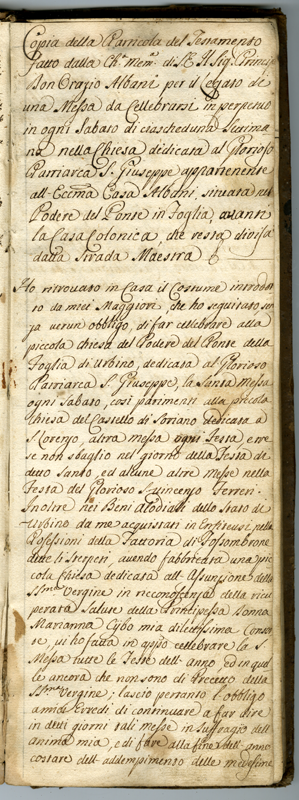 Copia della Parricola del Testamento
fatto dalla Ch: mem: di S.E. Il Sig: Princip
Don Orazio Albani per il Legato de
una Messa da Cellebrarsi in perpetuo
in ogni Sabato di ciascheduna Settima
na nella Chiesa dedicata al Glorioso
Patriarca S. Giuseppe appartenente
all' Eccma Casa Albani, situata nel
Podere del Ponte in Foglia, avanti
la Casa Colonica, che resta divisa
dalla Strada Maestra
Ho ritrovato in Casa il Costume introdot
to da miei Maggiori, che ho seguitato sen
za verun obbligo, di far cellebrare alla
piccola chiesa del Podere del Ponte della
Foglia di Urbino, dedicata al Glorioso
Patriarca S. Giuseppe, la Santa Messa
ogni Sabato, così parimenti alla piccola
Chiesa del Castello di Soriano dedicata a
S. Lorenzo, altra Messa ogni Festa, e
se non sbaglio nel giorno della Festa di
detto Santo, ed alcune altre Messe nella
Festa del Glorioso S. Vincenzo Ferreri.
Inoltre nei Beni Allodiali dello Stato di
Urbino da me acquistati in Enfiteusi, nelle
Possessioni della Fattoria di Fossombrone
dette li Sterpeti, avendo fabbricata una pic
cola Chiesa dedicata all' Assunzione della
SSma Vergine in riconoscenza della ricu
perata Salute della Principessa Donna
Marianna Cybo mia dilettissima Consor
te, vi ho fatta in appo cellebrare la S.
Messa tutte le Feste dell' anno, ed in quel
le ancora che non sono di Precetto della
SSma Vergine; lascio pertanto l' obbligo
a miei Eredi di continuare a far dire
in detti giorni tali messe in Suffragio dell'
anima mia, e di fare alla fine dell' anno
costare dell' addempimento delle medesime